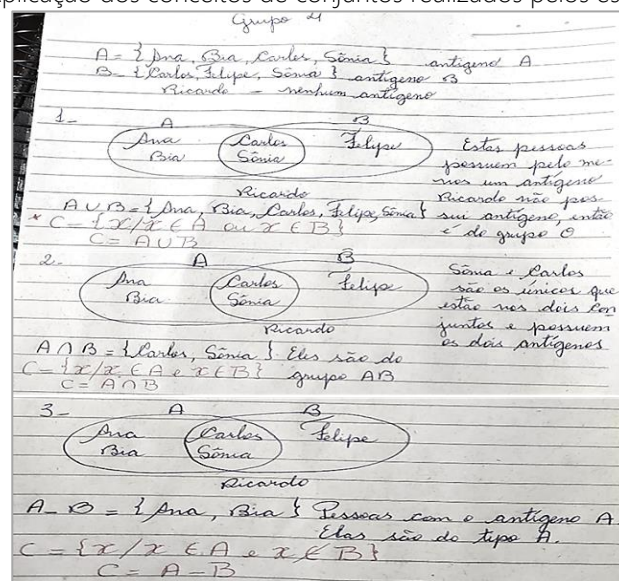 plicação dos conceitos de conjuntos realizados pelos es
Grupo 4
A = { Ana, Bia, Carlos, Sônia } antígeno A
B = { Carlos, Felipe, Sônia } antígeno B
Ricardo - nenhum antígeno
1- A B
Ana Carlos Felipe
Bia Sônia
Ricardo
Estas pessoas
possuem pelo me-
nos um antígeno
Ricardo não pos-
sui antígeno, então
é do grupo O
A ∪ B = { Ana, Bia, Carlos, Felipe, Sônia }
* C = { x/x ∈ A ou x ∈ B }
C = A ∪ B
2- A B
Ana Carlos Felipe
Bia Sônia
Ricardo
Sônia e Carlos
são os únicos que
estão nos dois con
juntos e possuem
os dois antígenos
A ∩ B = { Carlos, Sônia } Eles são do
grupo AB
C = { x/x ∈ A e x ∈ B }
C = A ∩ B
3- A B
Ana Carlos Felipe
Bia Sônia
Ricardo
A - B = { Ana, Bia } Pessoas com o antígeno A
Elas são do tipo A.
C = { x/x ∈ A e x ∉ B }
C = A - B